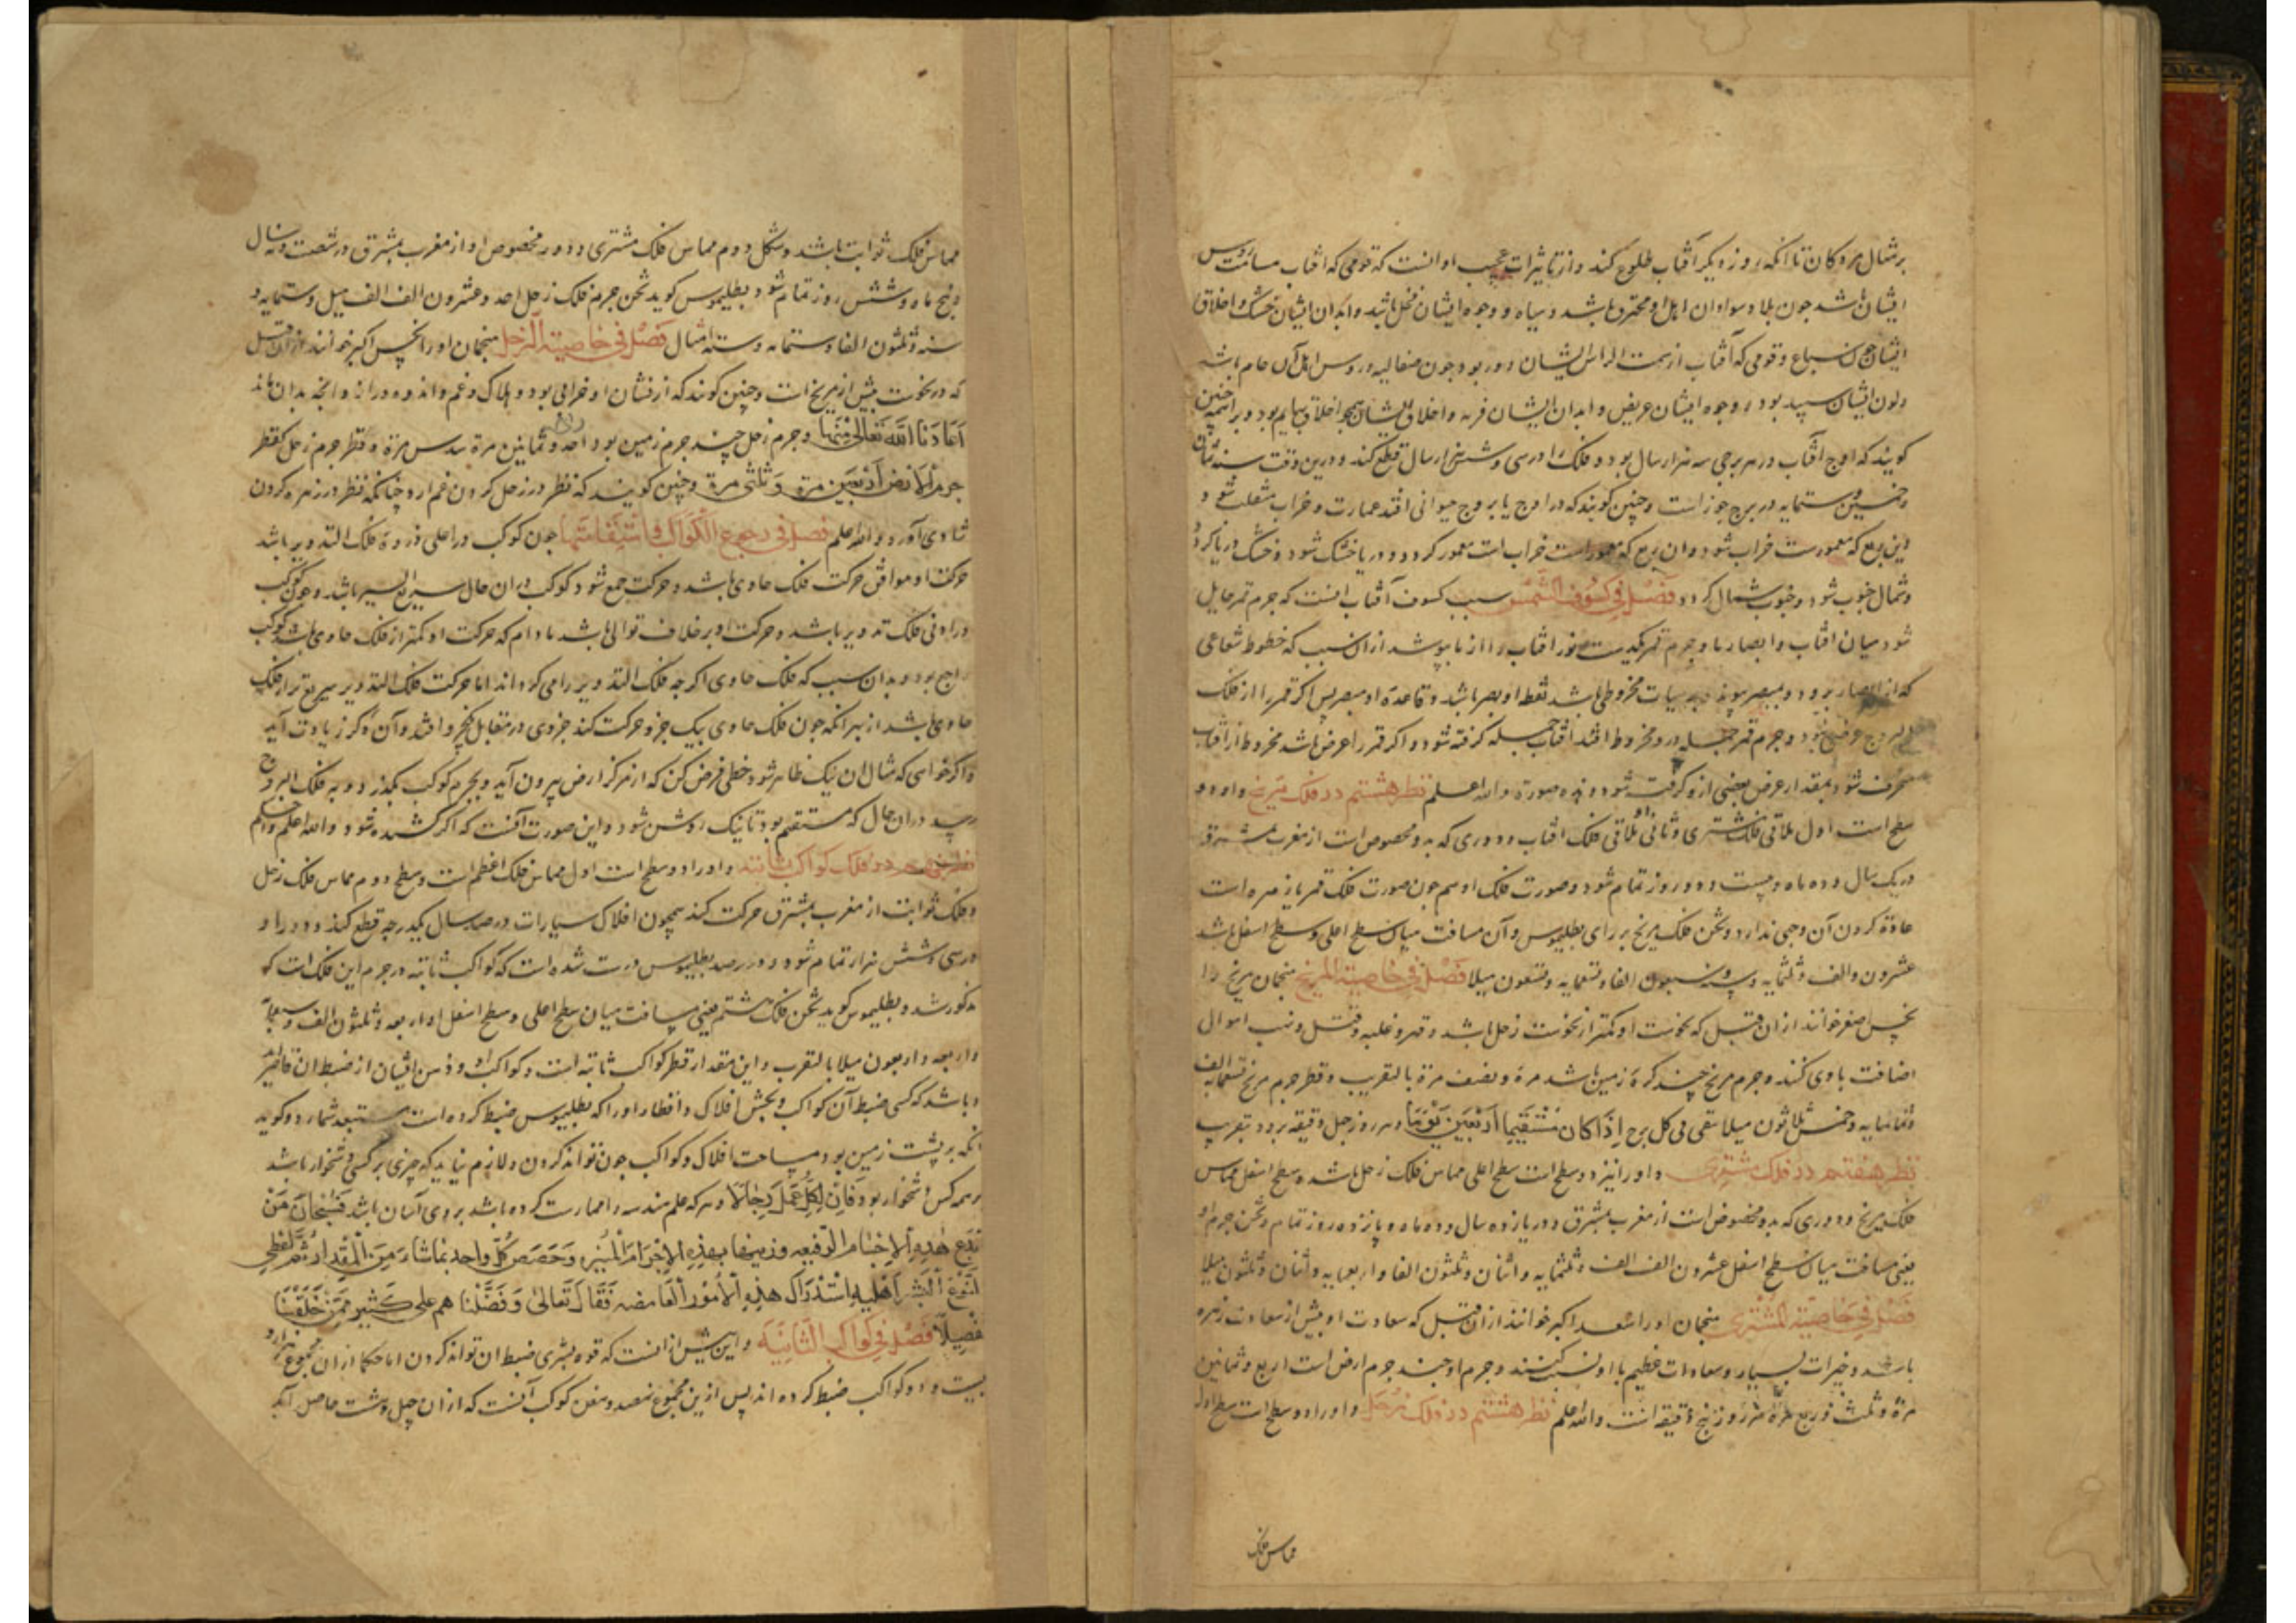 بر شال مردکان تا آنکه روز دیکر آفتاب طلوع کند و از تاثیرات عجیب او انست که قومی که افتاب مسامت روس
ایشان باشد جون بلاد سوادان اهل او محترق باشد و سیاه و وجوه ایشان نحل باشد و ابدان ایشان خشک و اخلاق
ایشان جون سباع و قومی که آفتاب از سمت الراس ایشان دور بود جون صقالیه و روس اهل آن خام باشد
ولون ایشان سپید بود و وجوه ایشان عریض و ابدان ایشان فربه و اخلاق ایشان همجو اخلاق بهایم بود
کویند که اوج آفتاب در هر برجی سه هزار سال بود و فلک را در سی و شش هزار سال قطع کند و درین وقت سنه ثمان
و خمسین و ستمایه در برج جوزاست و چنین کویند که در اوج با بروج جنوبی افتد عمارت و خراب منقلب شود و
این ربع که معمورست خراب شود و ان ربع که خراب است معمور کردد و دریا خشک شود و خشک دریا کردد
و شمال جنوب شود و جنوب شمال کردد فصل فی کسوف الشمس سبب کسوف آفتاب انست که جرم قمر حایل
شود میان افتاب و ابصار ما و جرم قمر کمدست نور افتاب را از ما بپوشد ازان سبب که خطوط شعاعی
که از ابصار بیرود و بمبصر پوندد بر هیات مخروطی باشد نقطه او بصر باشد و قاعدهٔ او مبصر پس اکر قمر را از فلک
البروج عرض نبود و جرم قمر جمله در مخروط افتد افتاب جمله کرفته شود و اکر قمر را عرض باشد مخروط از افتاب
منحرف شود بمقدار عرض بعضی ازو کرفته شود و هذه صورة والله اعلم نظر هشتم در فلک مریخ و او دو
سطح است اول ملاقی فلک مشتری و ثانی ملاقی فلک افتاب و دوری که بدو مخصوص است از مغرب بمشرق
در یک سال و ده ماه و بیست و دو روز تمام شود و صورت فلک او هم جون صورت فلک قمر باز مره است
عادة کردن آن وجی ندارد و ثخن فلک مریخ بر رای بطلیموس و آن مسافت میان سطح اعلی و سطح اسفل باشد
عشرون والف و ثلثمایه و سته و سبعون الفا و تسعمایه و تسعون میلا فصل فی خاصیة المریخ منجمان مریخ را
نحس اصغر خوانند ازان قبل که نحوست او کمتر از نحوست زحل باشد و قهر و غلبه و قتل و نهب اموال
اضافت باوی کنند و جرم مریخ جند کرهٔ زمین باشد مرة و نصف مرة بالتقریب و قطر جرم مریخ تسعة الف
و ثمانمایه و خمس ثلاثون میلا تقی فی کل برج اذا کان مستقیما اربعین یوما و هر روز جهل دقیقه برود بتقریب
نظر هفتم در فلک مشتری و او را نیز دو سطح است سطح اعلی مماس فلک زحل باشد و سطح اسفل مماس
فلک مریخ و دوری که بدو مخصوص است از مغرب بمشرق در یازده سال و ده ماه و پانزده روز تمام و ثخن جرم او
یعنی مسافت میان سطح اسفل عشرون الف الف و ثلثمایه و اثنان و ثلثون الفا و اربعمایه و اثنان و ثلثون میلا
فصل فی خاصیة المشتری منجمان او را سعد اکبر خوانند ازان قبل که سعادت او بیش از سعادت زهره
باشد و خیرات بسیار و سعادات عظیم با او نسبت کنند و جرم او جند جرم ارض است اربع و ثمانین
مرة و ثلث و ربع مرة هر روز پنج دقیقه است والله اعلم نظر هشتم در فلک زحل و او را دو سطح است سطح اول
مماس فلک
مماس فلک ثوابت باشند و شکل دوم مماس فلک مشتری و دور مخصوص او از مغرب بمشرق در شصت و نه سال
و پنج ماه و شش روز تمام شود بطلیموس کوید ثخن جرم فلک زحل احد و عشرون الف الف میل و ستمایه و
سته و ثلثون الفا و ستمایه و سته امثال فصل فی خاصیة الزحل منجمان او را نحس اکبر خوانند ازان قبل
که در نحوست بیش از مریخ است و چنین کویند که ازنشان او خرابی بود و هلاک و غم و اندوه و درانها و انچه بدان ماند
اعاذنا الله تعالی منها و جرم زحل چند جرم زمین بود احد و ثمانین مرة و سدس مرة و قطر جرم زحل کقطر
جرم الارض اربعین مرة و ثلثی مرة و چنین کویند که نظر در زحل کردن غم ارد چنانکه نظر در زهره کردن
شادی آورد والله اعلم فصل فی رجوع الکواکب و استقامتها جون کوکب در اعلی ذروة فلک التدویر باشد
حرکت او موافق حرکت فلک حاوی باشد و حرکت جمع شود کوکب دران حال سریع السیر باشد و جون کوکب
در ادنی فلک تدویر باشد و حرکت او بر خلاف توالی باشد مادام که حرکت او کمتر از فلک حاوی باشد کوکب
راجع بود و بدان سبب که فلک حاوی اکرجه فلک التدویر را می کرداند اما حرکت فلک التدویر سریع تر از فلک
حاوی باشد از بهر آنکه جون فلک حاوی بیک جزو حرکت کند جزوی در مقابل کنجر و افتد و آن دکر زیادت آید
و اکر خواهی که مثال ان نیک ظاهر شود خطی فرض کن که از مرکز ارض بیرون آید و بجرم کوکب بکذرد و به فلک البروج
رسد دران حال که مستقیم بود تا نیک روشن شود و این صورت آنست که اکر کشیده شود والله اعلم و احکم
نظر نهم در فلک کواکب ثابته و او را دو سطح است اول مماس فلک اعظم است و سطح دوم مماس فلک زحل
و فلک ثوابت از مغرب بمشرق حرکت کند همچون افلاک سیارات در صد سال یکدرجه قطع کند و دور او
در سی و شش هزار تمام شود و در رصد بطلیموس درست شده است که کواکب ثابته در جرم این فلک است که
مذکور شد و بطلیموس کوید ثخن فلک هشتم یعنی مسافت میان سطح اعلی و سطح اسفل او اربعه و ثلثون الف و سبعمایه
و اربعه و اربعون میلا بالتقرب و این مقدار قطر کواکب ثابته است و کواکب او و ذهن انسان از ضبط ان قاصر اید
و باشد که کسی ضبط آن کواکب و بخش افلاک و اقطار او را که بطلیموس ضبط کرده است مستبعد شمارد و کوید
انکه بر پشت زمین بود مساحت افلاک و کواکب جون تواند کردن و لازم نیاید که چیزی بر کسی دشخوار باشد
بر همه کس دشخوار بود فان لکل عمل رجالا و هر که علم هندسه را ممارست کرده باشد بروی آسان باشد فسبحان من
ابدع هذه الاجسام الرفیعه و زینها بهذه الاجرام المنیره و خصص کل واحد بما شاء من المقدار ثم اعطی
لنوع البشر اهلیه استدراک هذه الامور الغامضه فقال تعالی و فضلنا هم علی کثیر ممن خلقنا
تفضیلا فصل فی کواکب الثابتة و این بیش ازانست که قوه بشری ضبط ان تواند کردن اما حکما ازان مجموع هزار و
بیست و دو کواکب ضبط کرده اند پس ازین مجموع نهصد و هفده کوکب آنست که ازان چهل و هشت حاصل آید